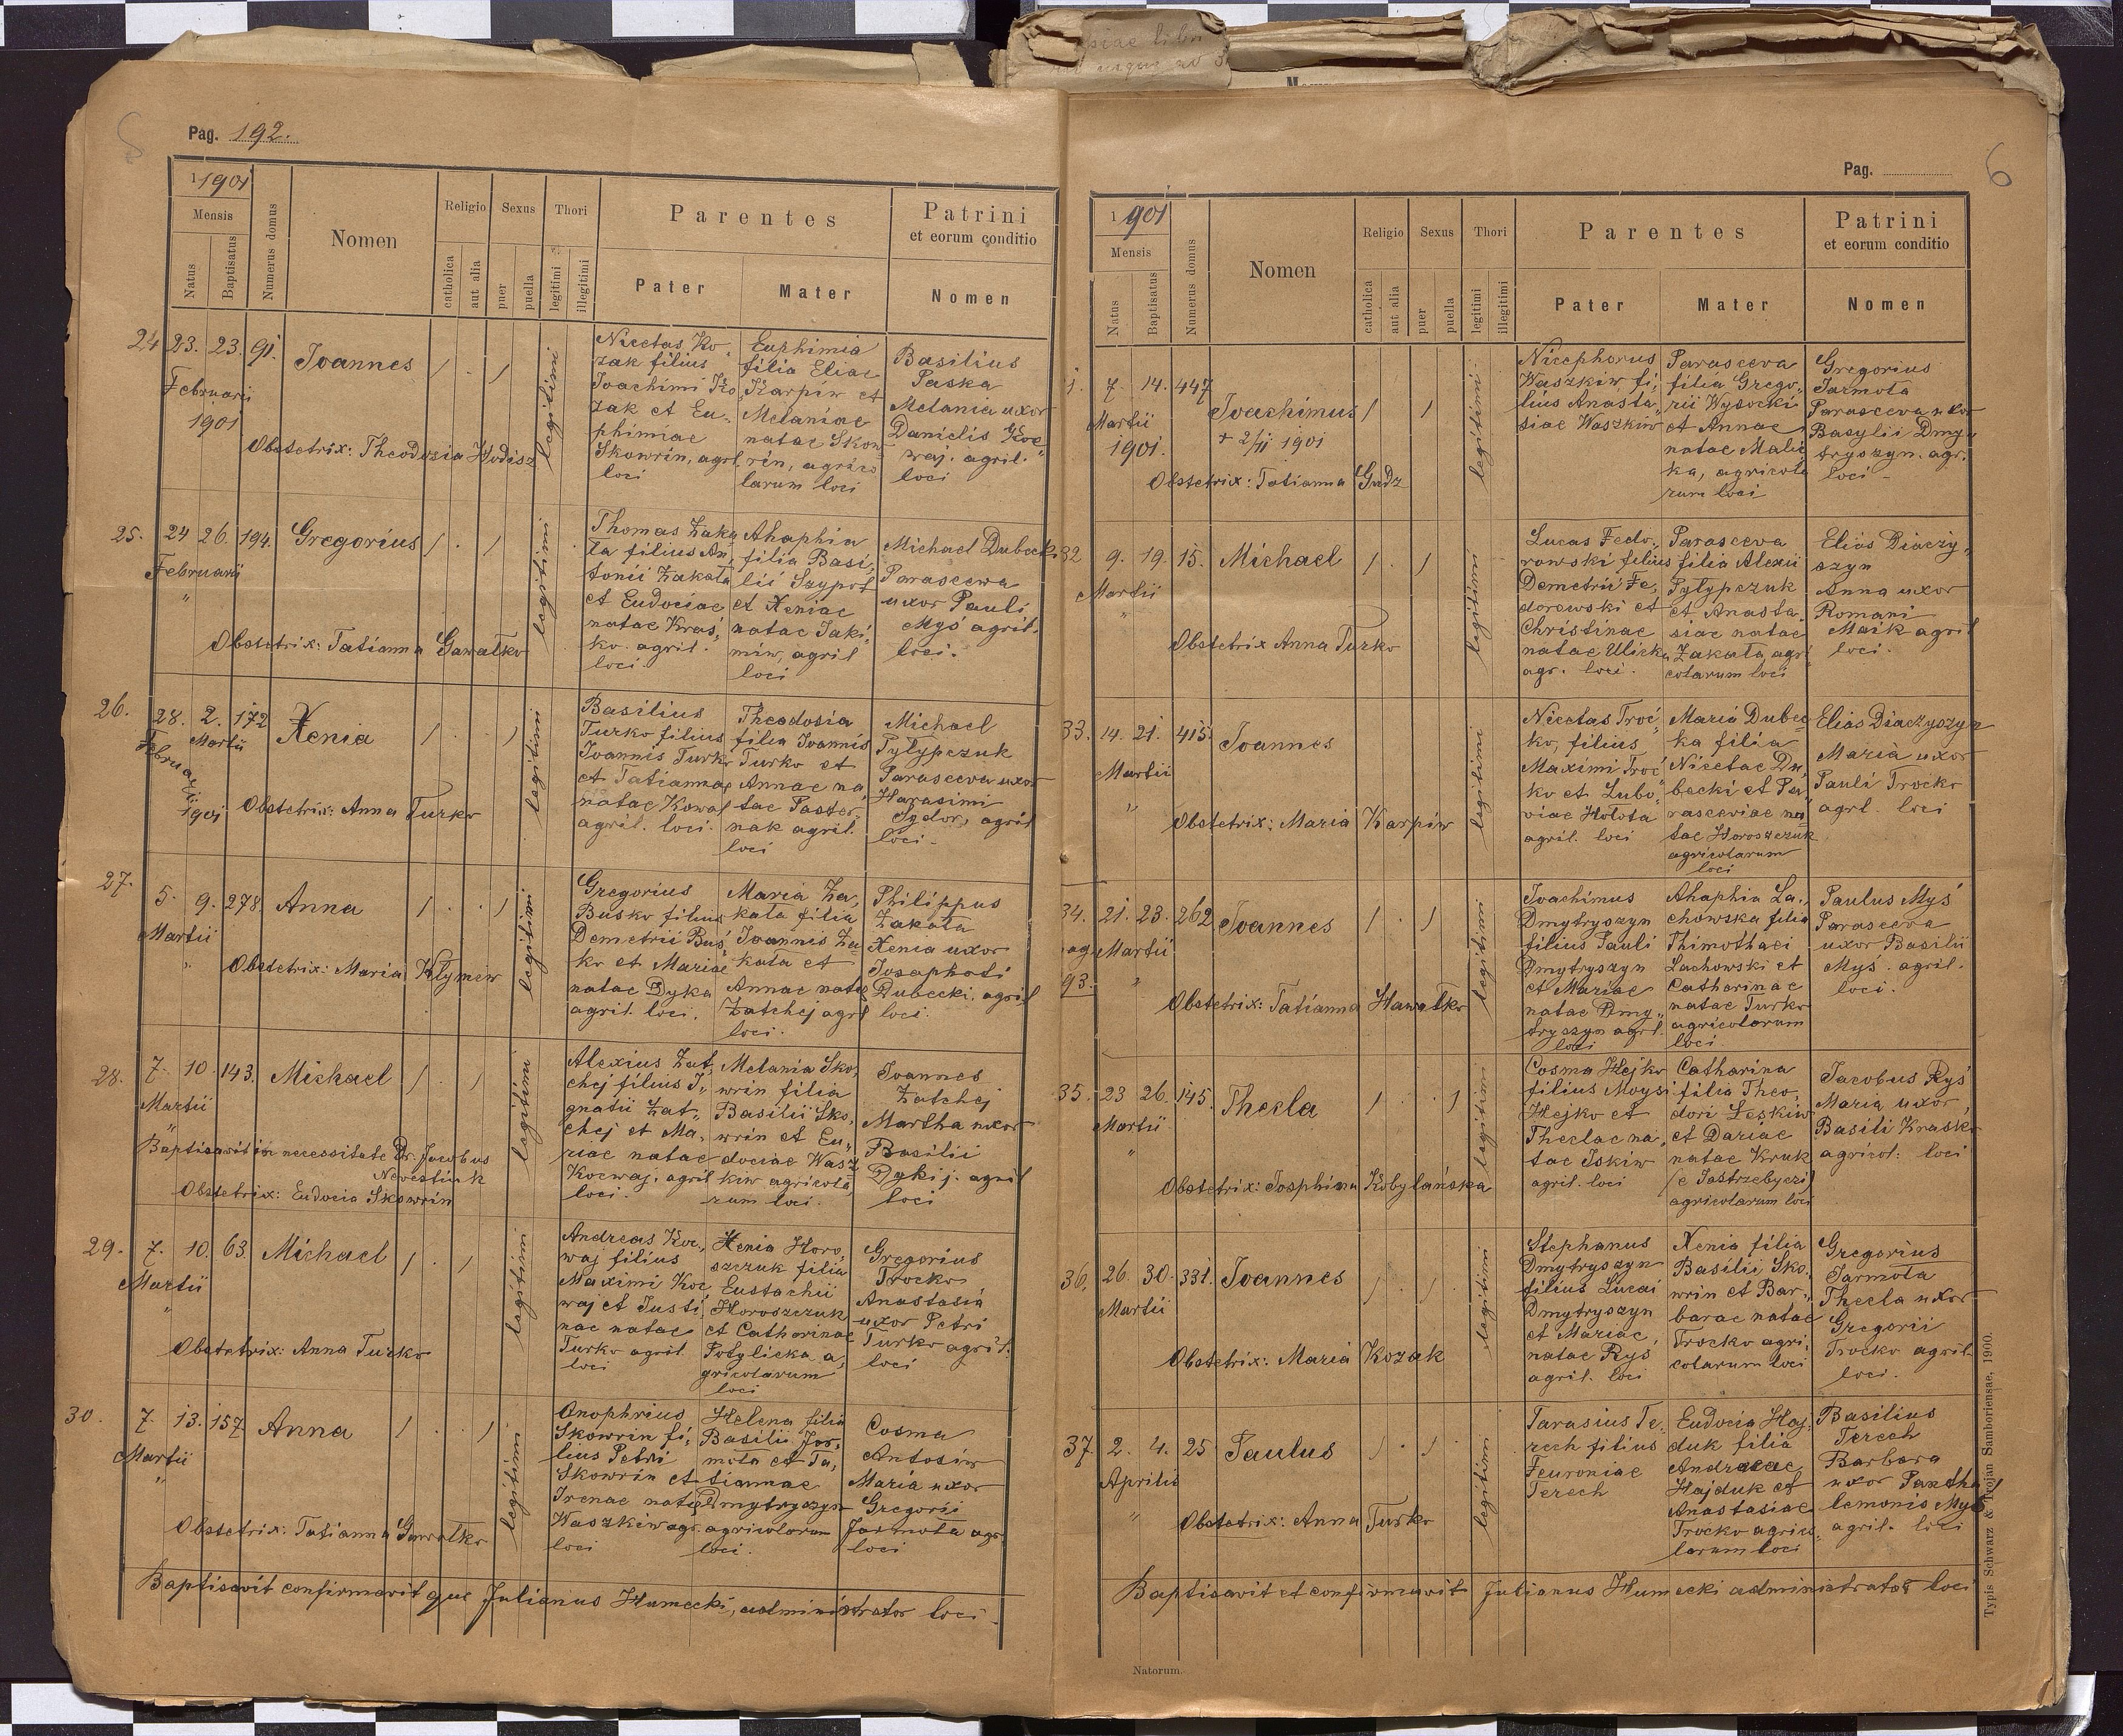 piae libri
5
Pag. 192.
1901
Mensis
Natus
Baptisatus
Numerus domus
Nomen
Religio
catholica
aut alia
Sexus
puer
puella
Thori
legitimi
illegitimi
Parentes
Pater
Mater
Patrini
et eorum conditio
Nomen
24 23. 23. 91. Joannes / . /
Februarii
1901
Obstetrix: Theodozia Hodisz
legitimi
Nicetas Ko„
zak filius
Joachimi Ko„
zak et Eu„
phimiae
Skowrin, agrl.
loci
Euphimia
filia Eliae
Karpiw et
Melaniae
natae Skow„
rin, agrico„
larum loci
Basilius
Paska
Melania uxor
Danielis Koc„
waj. agril.
loci
25. 24 26. 194. Gregorius / . /
Februarii
"
Obstetrix: Tatianna Gawałko
legitimi
Thomas Zaka„
ła filius An„
tonii Zakała
et Eudociae
natae Kraś„
ko. agril.
loci
Ahaphia
filia Basi„
lii Szypot
et Xeniae
natae Jaki„
miw, agril
loci
Michael Dubecki
Parascewa
uxor Pauli
Myś agril.
loci.
26. 28. 2. 172 Xenia / . . /
Februarii
Martii
1901
Obstetrix: Anna Turko
legitimi
Basilius
Turko filius
Joannis Turko
et Tatiannae
natae Kowal
agril. loci.
Theodosia
filia Joannis
Turko et
Annae na„
tae Paster„
nak agril.
loci
Michael
Pyłypczuk
Parasceva uxor
Harasimi
Sydor, agril
loci.
27. 5. 9. 278. Anna / . . /
Martii
"
Obstetrix: Maria Kłymiw
legitimi
Gregorius
Busko filius
Demetrii Buś„
ko et Mariae
natae Dyka
agril. loci.
Maria Za„
kała filia
Joannis Za„
kała et
Annae natae
Zatchej agrl
loci.
Philippus
Zakała
Xenia uxor
Josaphati
Dubecki. agril
loci.
28. 7. 10. 143. Michael / . /
Martii
"
Baptisavit in necessitate Dr. Jacobus
Nevestiuk
Obstetrix: Eudocia Skowrin
legitimi
Alexius Zat„
chej filius J„
gnatii Zat„
chej et Ma„
riae natae
Kocwaj. agril
loci.
Melania Sko„
wrin filia
Basilii Sko„
wrin et Eu„
dociae Wasz„
kiw agricola„
rum loci.
Joannes
Zatchej
Martha uxor
Basilii
Dykij. agril
loci
29. 7. 10. 63. Michael / . /
Martii
"
Obstetrix: Anna Turko
legitimi
Andreas Koc„
waj filius
Maximi Koc„
waj et Justi„
nae natae
Turko agril
loci
Xenia Horo„
szczuk filia
Eustachii
Horoszczuk
et Catharinae
Potylicka a„
gricolarum
loci
Gregorius
Trocko
Anastasia
uxor Petri
Turko agril.
loci
30. 7. 13. 157. Anna / . . /
Martii
"
Obstetrix: Tatianna Gawałko
legitimi
Onophrius
Skowrin fi„
lius Petri
Skowrin et
Irenae natae
Waszkiw agr.
loci
Helena filia
Basilii Jar„
mota et Ta„
tiannae
Dmytryszyn
agricolarum
loci.
Cosma
Antosiw
Maria uxor
Gregorii
Jarmota agr.
loci
Baptisavit confirmavit que Julianus Humecki, administrator loci
6
Pag.
1901
Mensis
Natus
Baptisatus
Numerus domus
Nomen
Religio
catholica
aut alia
Sexus
puer
puella
Thori
legitimi
illegitimi
Parentes
Pater
Mater
Patrini
et eorum conditio
Nomen
7. 14. 447 Joachimus / /
Martii
1901.
Obstetrix: Tatianna Gudz
legitimi
Nicephorus
Waszkiw fi„
lius Anasta„
siae Waszkiw
Parasceva
filia Grego„
rii Wysocki
et Annae
natae Malic
ka, agricola
rum loci
Gregorius
Jarmota
Parasceva uxor
Basylii Dmy„
tryszyn. agr.
loci
32 9. 19. 15. Michael / . /
Martii
"
Obstetrix Anna Turko
legitimi
Lucas Fedo„
rowski filius
Demetrii Fe„
dorowski et
Christinae
natae Ulicka
agr. loci.
Parasceva
filia Alexii
Pyłypczuk
et Anasta„
siae natae
Zakała agri„
colarum loci
Elias Diaczy„
szyn
Anna uxor
Romani
Maik agril
loci.
33. 14. 21. 415. Joannes
Martii
"
Obstetrix: Maria Karpiw
legitimi
Nicetas Troć„
ko, filius
Maximi Troć„
ko et Lubo„
viae Hołota
agril. loci
Maria Dubec„
ka filia
Nicetae Du„
becki et Pa„
rasceviae na„
tae Horoszczuk
agricolarum
loci
Elias Diaczyszyn
Maria uxor
Pauli Trocko
agrl. loci
34. 21. 23. 262 Joannes / . /
pag. Martii
93. "
Obstetrix: Tatianna Hawałko
legitimi
Joachimus
Dmytryszyn
filius Pauli
Dmytryszyn
et Mariae
natae Dmy„
tryszyn agrl.
loci
Ahaphia La„
chowska filia
Thimothaei
Lachowski et
Catharinae
natae Turko
agricolarum
loci.
Paulus Myś
Parasceva
uxor Basilii
Myś. agril.
loci.
35. 23 26. 145. Thecla / . . /
Martii
"
Obstetrix: Josphina Kobylańska
legitimi
Cosma Hejko
filius Moysi
Hejko et
Theclae na„
tae Iskiw
agril. loci
Catharina
filia Theo„
dori Leskiw
et Dariae
natae Kruk
(e Jastrzebyczi)
agricolarum loci
Jacobus Ryś
Maria uxor
Basili Krasko
agricol: loci
36. 26. 30. 331. Joannes / . /
Martii
Obstetrix: Maria Kozak
legitimi
Stephanus
Dmytryszyn
filius Lucai
Dmytryszyn
et Mariae,
natae Ryś
agril. loci
Xenia filia
Basilii Sko„
wrin et Bar„
barae natae
Trocko agri„
colarum loci
Gregorius
Jarmota
Thecla uxor
Gregorii
Trocko agril.
loci.
37 2. 4. 25 Paulus / . /
Aprilis
"
Obstetrix: Anna Turko
legitimi
Tarasius Te„
rech filius
Feuroniae
Terech
Eudocia Haj„
duk filia
Andreae
Hajduk et
Anastasiae
Trocko agrico„
larum loci
Basilius
Terech
Barbara
uxor Pantha
lemonis Myś
agril. loci
Baptisavit et confirmavit Julianus Humecki administrator loci
Natorum.
Typis Schwarz & Trojan Samboriensae, 1900.